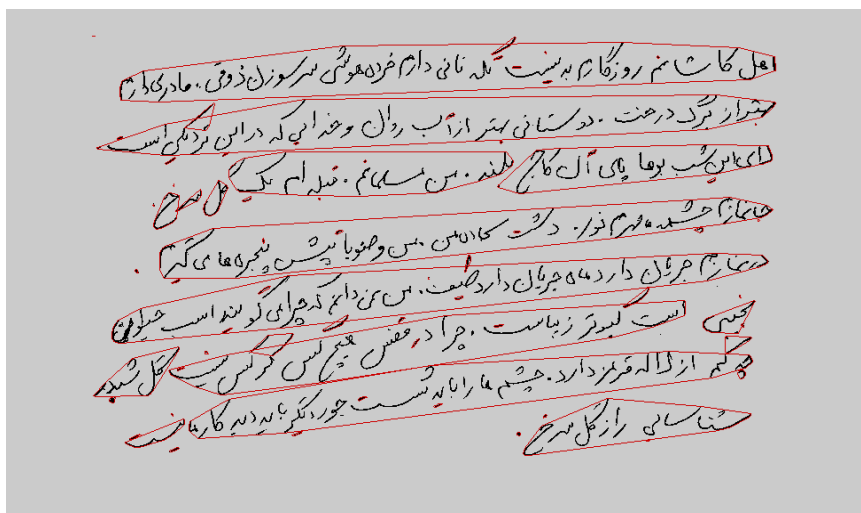 اهل کاشانم روزگارم بد نیست تکه نانی دارم خرده هوشی سر سوزن ذوقی . مادری دارم
بهتر از برگ درخت . دوستانی بهتر از آب روان و خدایی که در این نزدیکی است
لای این شب بوها پای آن کاج بلند . من مسلمانم . قبله ام یک گل سرخ
جانمازم چشمه مهرم نور . دشت سجاده من . من وضو با تپش پنجره ها می گیرم
در نمازم جریان دارد ماه جریان دارد طیف . من نمی دانم که چرا می گویند اسب حیوان
نجیبی است کبوتر زیباست . چرا در قفس هیچ کسی کرکس نیست گل شبدر
چه کم از لاله قرمز دارد . چشم ها را باید شست جور دیگر باید دید کار ما نیست
شناسایی راز گل سرخ .